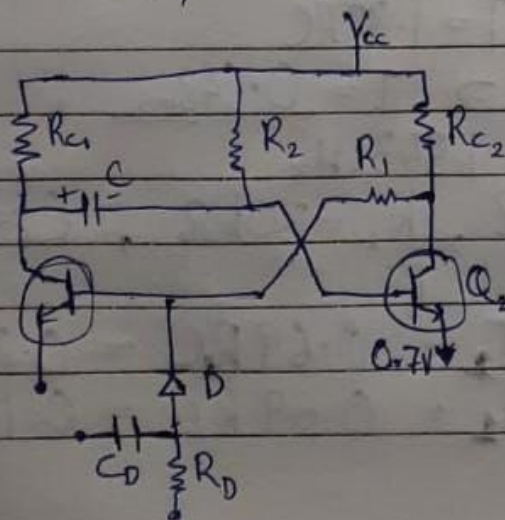 Vcc
Rc1 R2 Rc2
R1
+ C -
Q2
0.7V
D
CD RD